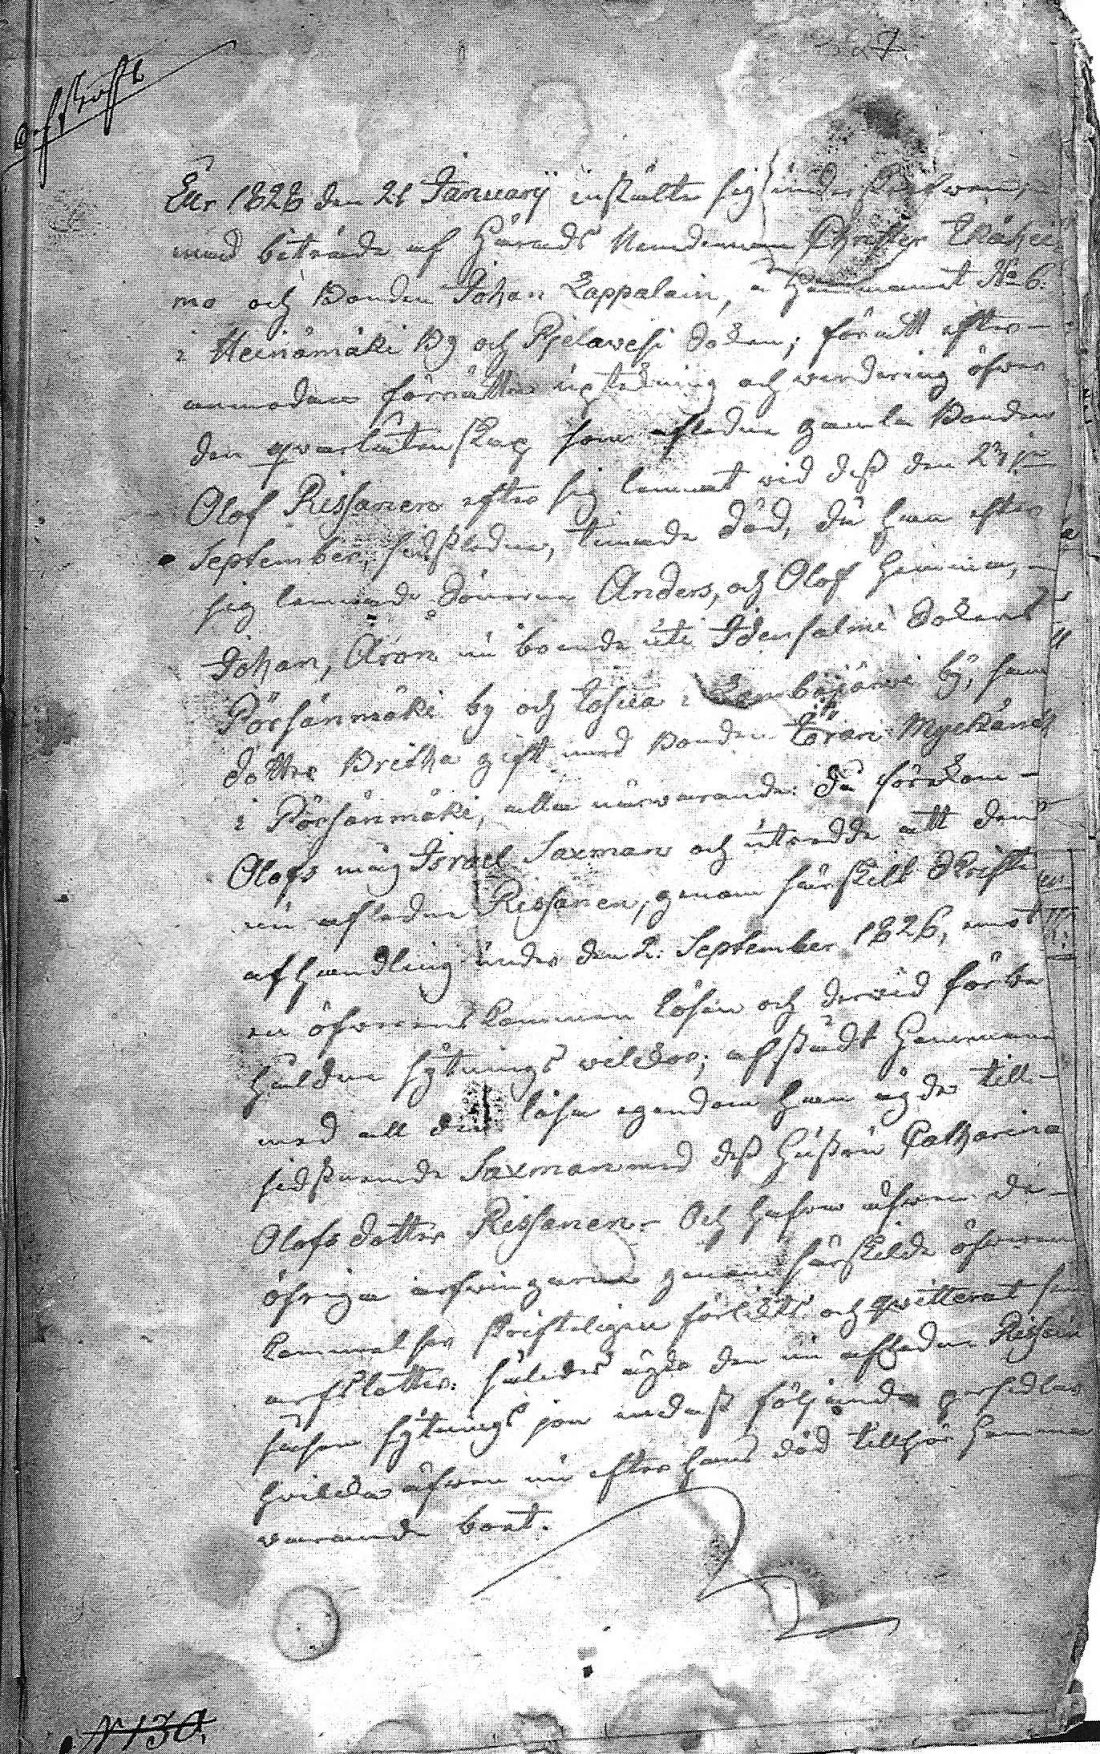 Afskrift
År 1828 den 21 January instälte sig underskrefwen,
med biträde af Härads Nämdeman Christer
mo och Bonden Johan Lappalain, å Hemmanet No 6.
i Heinämäki By och Pjelavesi Soken; för att efter
anmodan förrätta upteckning och werdering öfwer
den qwarlåtenskap som afledne gamla Bonden
Olof Rissanen efter sig lemnat wid dess den 27
September, sidstledne, timade död, då han efter
sig lemnade Sönerne Anders, och Olof hemma,
Johan, Aron nu boende uti Idensalmi Sokens
Pörsänmäki by och Josua i by, samt
dotter Britha gift med Bonden Göran Myckänen
i Pörsänmäki, alla närwarande: Då förekom
Olofs måg Israel Saxman och utredde att den
nu afledne Rissanen, genom särskilt Skriftl.
afhandling under den 2. September 1826, emot
en öfwerenskommen lösen och derwid förbe
hållne sytnings wilkor; afstådt Hemmanet
med all den lösa egendom han ägde till
sidstnemde Saxman med dess hustru Catharina
Olofs dotter Rissanen. Och hafwa äfwen de
öfriga arfwingarne genom särskilde öfwerens
kommelser skrifteligen förlikts och qwitterat sina
arfslotter. således ägde den nu afledne Rissain
såsom sytnings jon endast följande persedlar
hvilka äfwen nu efter hans död tillhör Hemma
warande boet.
N 130.